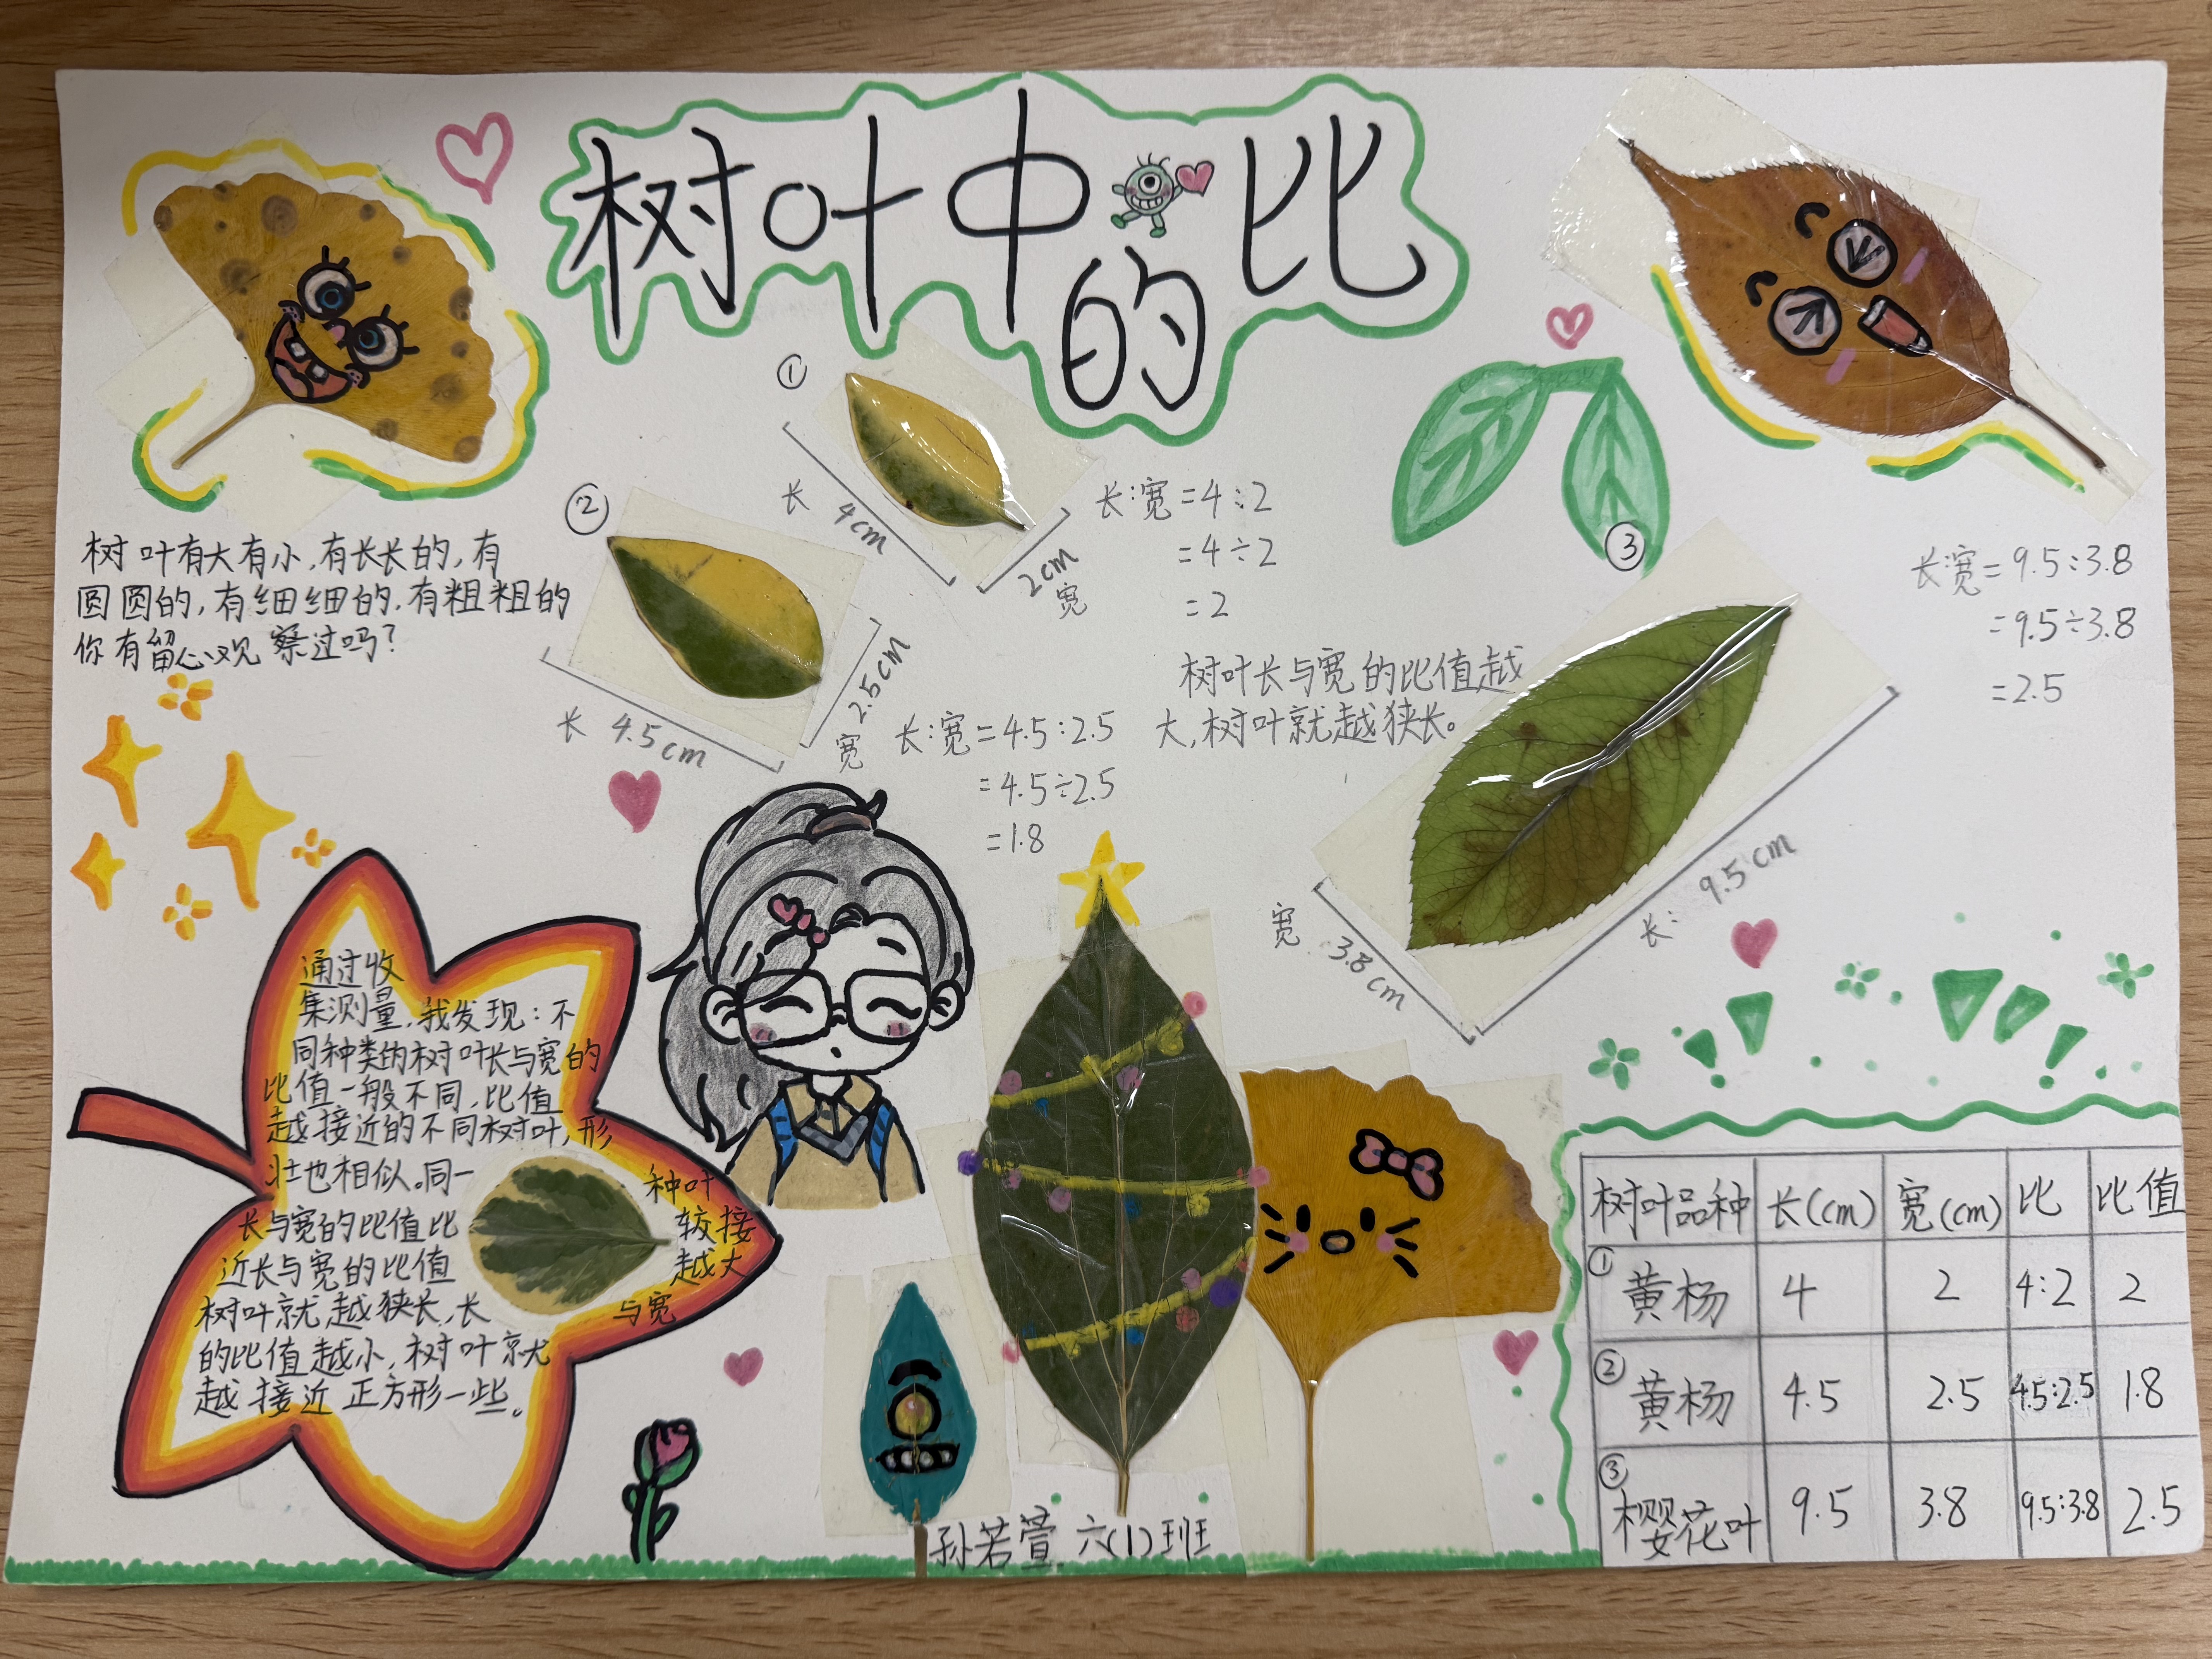 树叶中的比
树叶有大有小,有长长的,有
圆圆的,有细细的,有粗粗的
你有留心观察过吗?
①
长 4cm
2cm
宽
长:宽=4:2
=4÷2
=2
②
长 4.5cm
宽 2.5cm
长:宽=4.5:2.5
=4.5÷2.5
=1.8
树叶长与宽的比值越
大,树叶就越狭长。
③
宽 3.8cm
长: 9.5cm
长:宽=9.5:3.8
=9.5÷3.8
=2.5
通过收
集测量,我发现:不
同种类的树叶长与宽的
比值一般不同,比值
越接近的不同树叶,形
壮也相似。同一种叶
长与宽的比值比较接
近长与宽的比值越大
树叶就越狭长,长与宽
的比值越小,树叶就
越接近正方形一些。
孙若萱 六(1)班
树叶品种 长(cm) 宽(cm) 比 比值
①黄杨 4 2 4:2 2
②黄杨 4.5 2.5 4.5:2.5 1.8
③樱花叶 9.5 3.8 9.5:3.8 2.5